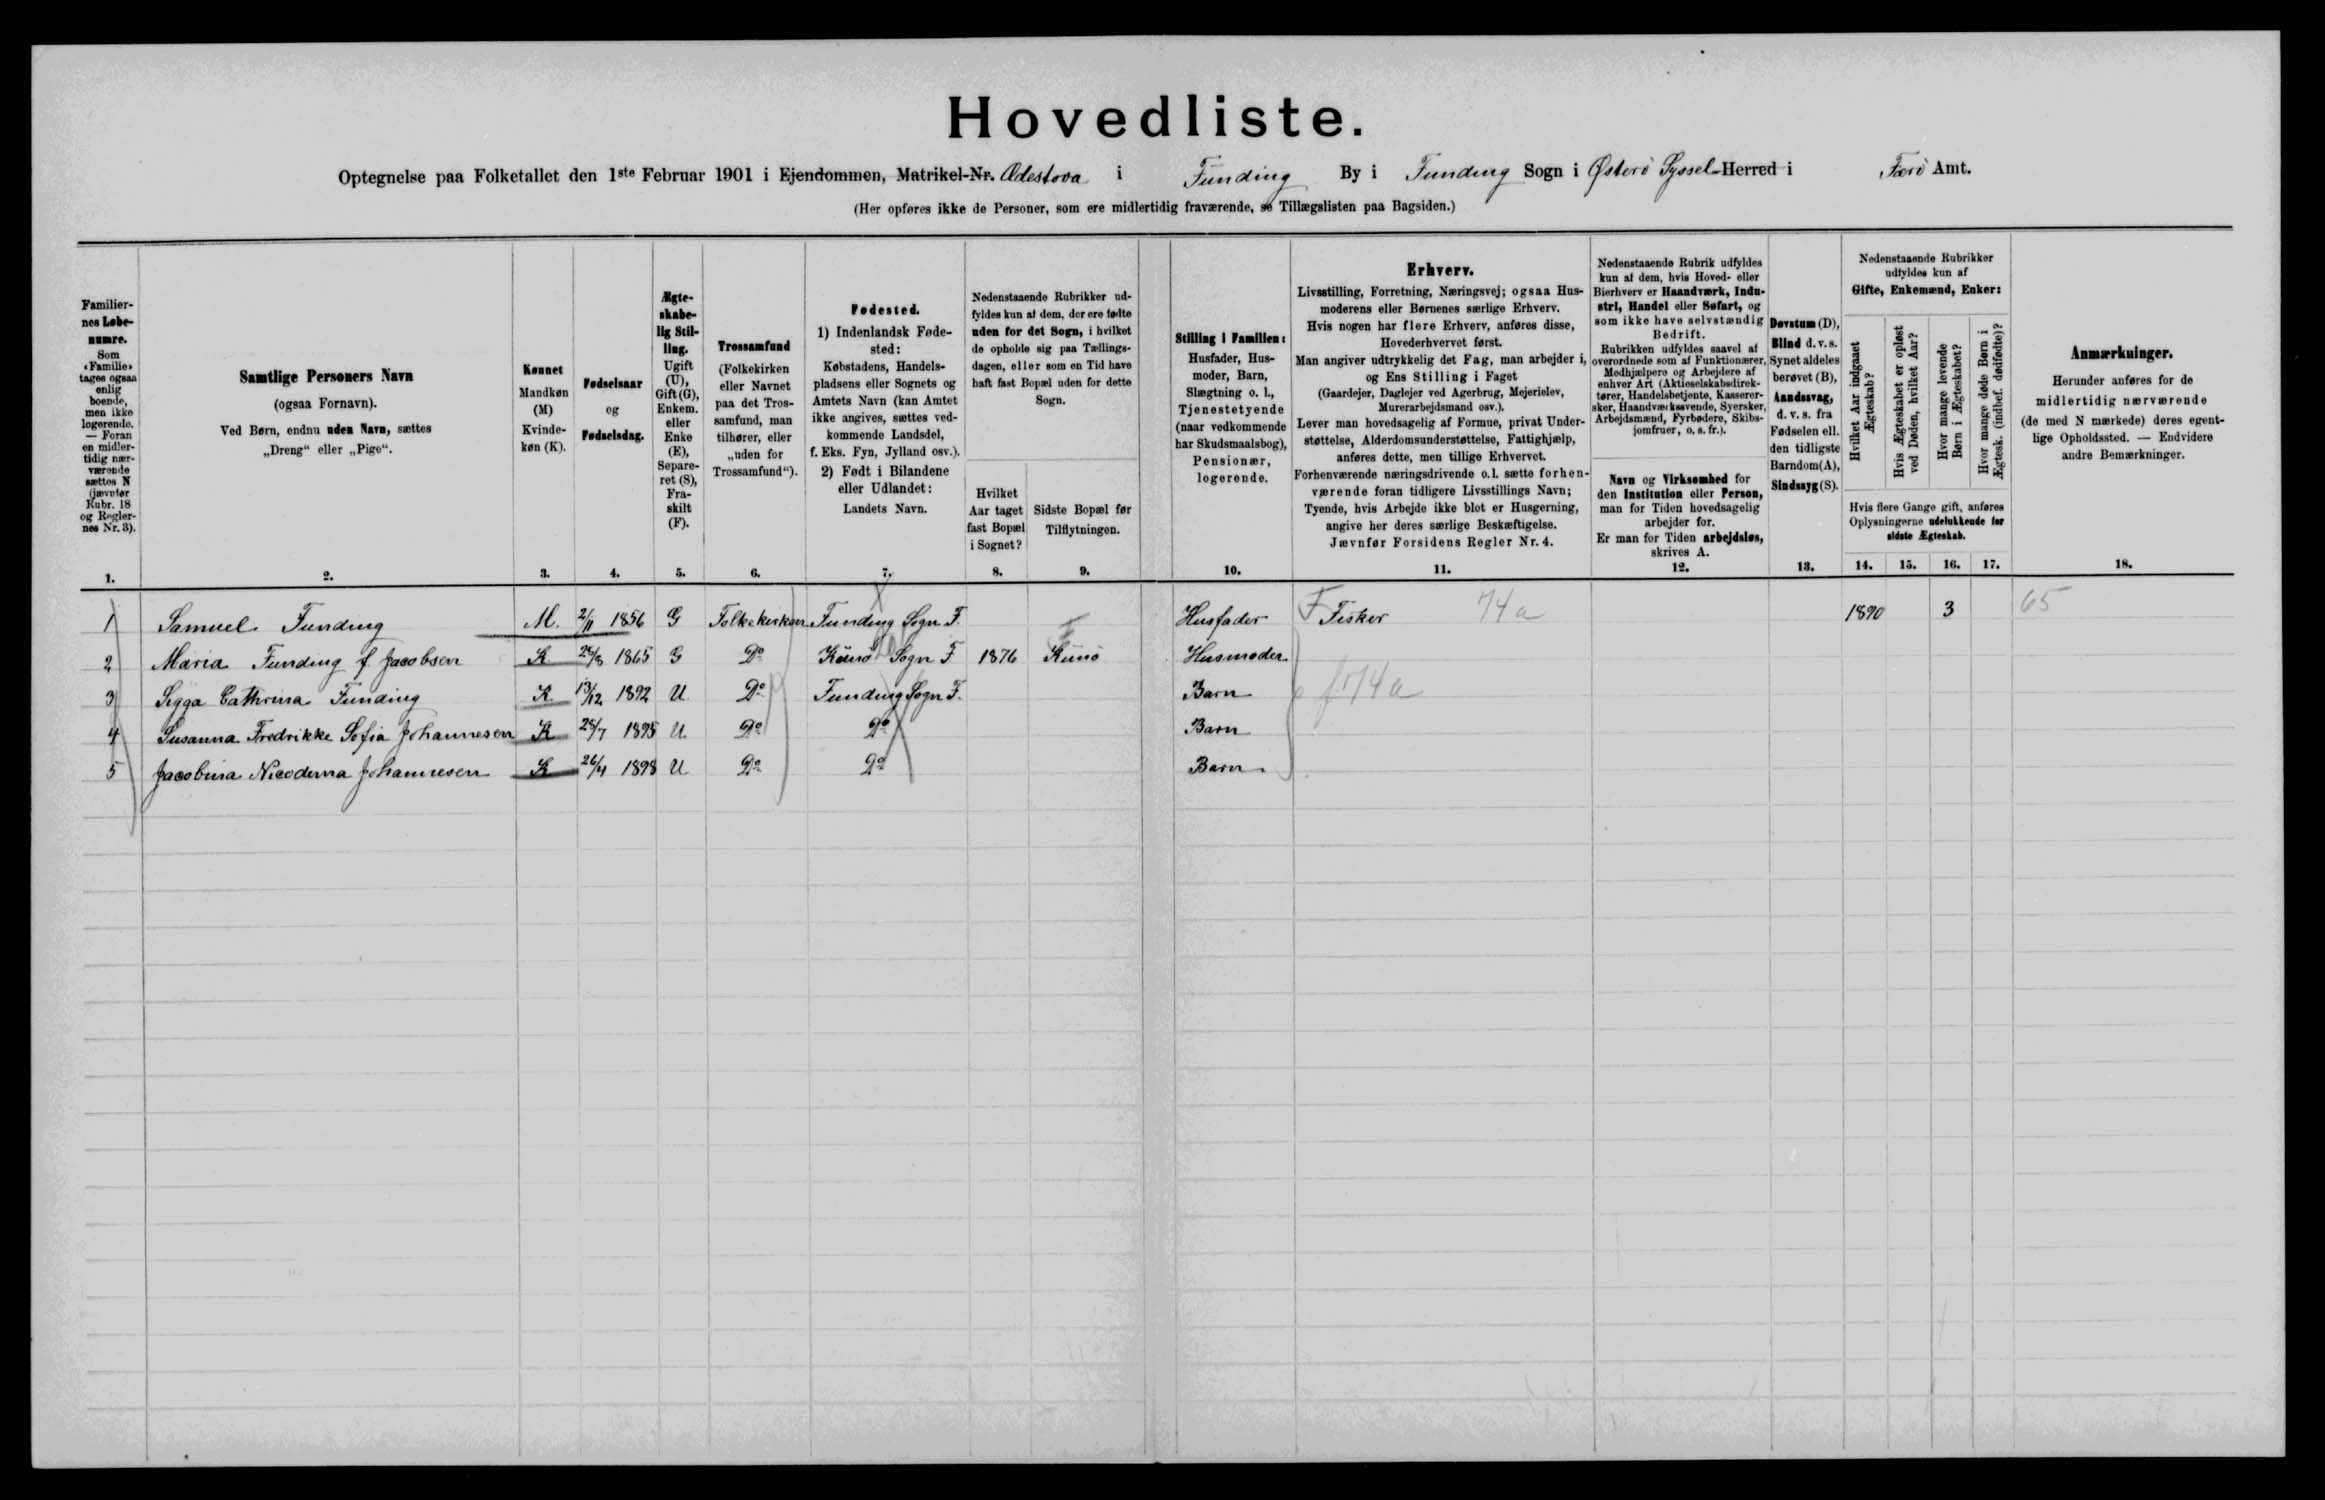 Hovedliste.
Optegnelse paa Folketallet den 1ste Februar 1901 i Ejendommen, Matrikel-Nr. Ødestova i Funding By i Funding Sogn i Østerö Syssel Herred i Færö Amt.
(Her opføres ikke de Personer, som ere midlertidig fraværende, se Tillægslisten paa Bagsiden.)
Familiernes Løbenumre.
Som «Familie» tages ogsaa enlig boende, men ikke logerende. — Foran en midlertidig nærværende sættes N (jævnfør Rubr. 18 og Reglernes Nr. 3).
Samtlige Personers Navn
(ogsaa Fornavn).
Ved Børn, endnu uden Navn, sættes
„Dreng“ eller „Pige“.
Kønnet
Mandkøn (M)
Kvindekøn (K).
Fødselsaar
og
Fødselsdag.
Ægteskabelig Stilling.
Ugift (U), Gift (G), Enkem. eller Enke (E), Separeret (S), Fraskilt (F).
Trossamfund
(Folkekirken eller Navnet paa det Trossamfund, man tilhører, eller „uden for Trossamfund“).
Fødested.
1) Indenlandsk Fødested:
Købstadens, Handelspladsens eller Sognets og Amtets Navn (kan Amtet ikke angives, sættes vedkommende Landsdel, f. Eks. Fyn, Jylland osv.).
2) Født i Bilandene eller Udlandet:
Landets Navn.
Nedenstaaende Rubrikker udfyldes kun af dem, der ere fødte uden for det Sogn, i hvilket de opholde sig paa Tællingsdagen, eller som en Tid have haft fast Bopæl uden for dette Sogn.
Hvilket Aar taget fast Bopæl i Sognet?
Sidste Bopæl før Tilflytningen.
Stilling i Familien:
Husfader, Husmoder, Barn, Slægtning o. l., Tjenestetyende (naar vedkommende har Skudsmaalsbog), Pensionær, logerende.
Erhverv.
Livsstilling, Forretning, Næringsvej; ogsaa Husmoderens eller Børnenes særlige Erhverv.
Hvis nogen har flere Erhverv, anføres disse, Hovederhvervet først.
Man angiver udtrykkelig det Fag, man arbejder i, og Ens Stilling i Faget
(Gaardejer, Daglejer ved Agerbrug, Mejerielev, Murerarbejdsmand osv.).
Lever man hovedsagelig af Formue, privat Understøttelse, Alderdomsunderstøttelse, Fattighjælp, anføres dette, men tillige Erhvervet.
Forhenværende næringsdrivende o. l. sætte forhenværende foran tidligere Livsstillings Navn;
Tyende, hvis Arbejde ikke blot er Husgerning, angive her deres særlige Beskæftigelse.
Jævnfør Forsidens Regler Nr. 4.
Nedenstaaende Rubrik udfyldes kun af dem, hvis Hoved- eller Bierhverv er Haandværk, Industri, Handel eller Søfart, og som ikke have selvstændig Bedrift.
Rubrikken udfyldes saavel af overordnede som af Funktionærer, Medhjælpere og Arbejdere af enhver Art (Aktieselskabsdirektører, Handelsbetjente, Kasserersker, Haandværkssvende, Syersker, Arbejdsmænd, Fyrbødere, Skibsjomfruer, o. s. fr.).
Navn og Virksomhed for den Institution eller Person, man for Tiden hovedsagelig arbejder for.
Er man for Tiden arbejdsløs, skrives A.
Døvstum (D), Blind d. v. s. Synet aldeles berøvet (B), Aandssvag, d. v. s. fra Fødselen ell. den tidligste Barndom (A), Sindssyg (S).
Nedenstaaende Rubrikker udfyldes kun af
Gifte, Enkemænd, Enker:
Hvilket Aar indgaaet Ægteskab?
Hvis Ægteskabet er opløst ved Døden, hvilket Aar?
Hvor mange levende Børn i Ægteskabet?
Hvor mange døde Børn i Ægtesk. (indbef. dødfødte)?
Hvis flere Gange gift, anføres Oplysningerne udelukkende for sidste Ægteskab.
Anmærkninger.
Herunder anføres for de midlertidig nærværende (de med N mærkede) deres egentlige Opholdssted. — Endvidere andre Bemærkninger.
1. 2. 3. 4. 5. 6. 7. 8. 9. 10. 11. 12. 13. 14. 15. 16. 17. 18.
1 Samuel Funding M. 2/11 1856 G Folkekirken Funding Sogn F. Husfader F Fisker 74a 1890 3 65
2 Maria Funding f. Jacobsen K 28/8 1865 G Do Kunö Sogn F 1876 Kunö Husmoder
3 Sigga Cathrina Funding K 13/12 1892 U Do Funding Sogn F. Barn f 74a
4 Susanna Fredrikke Sofia Johannesen K 28/7 1895 U Do Do Barn
5 Jacobina Nicodema Johannesen K 26/4 1898 U Do Do Barn